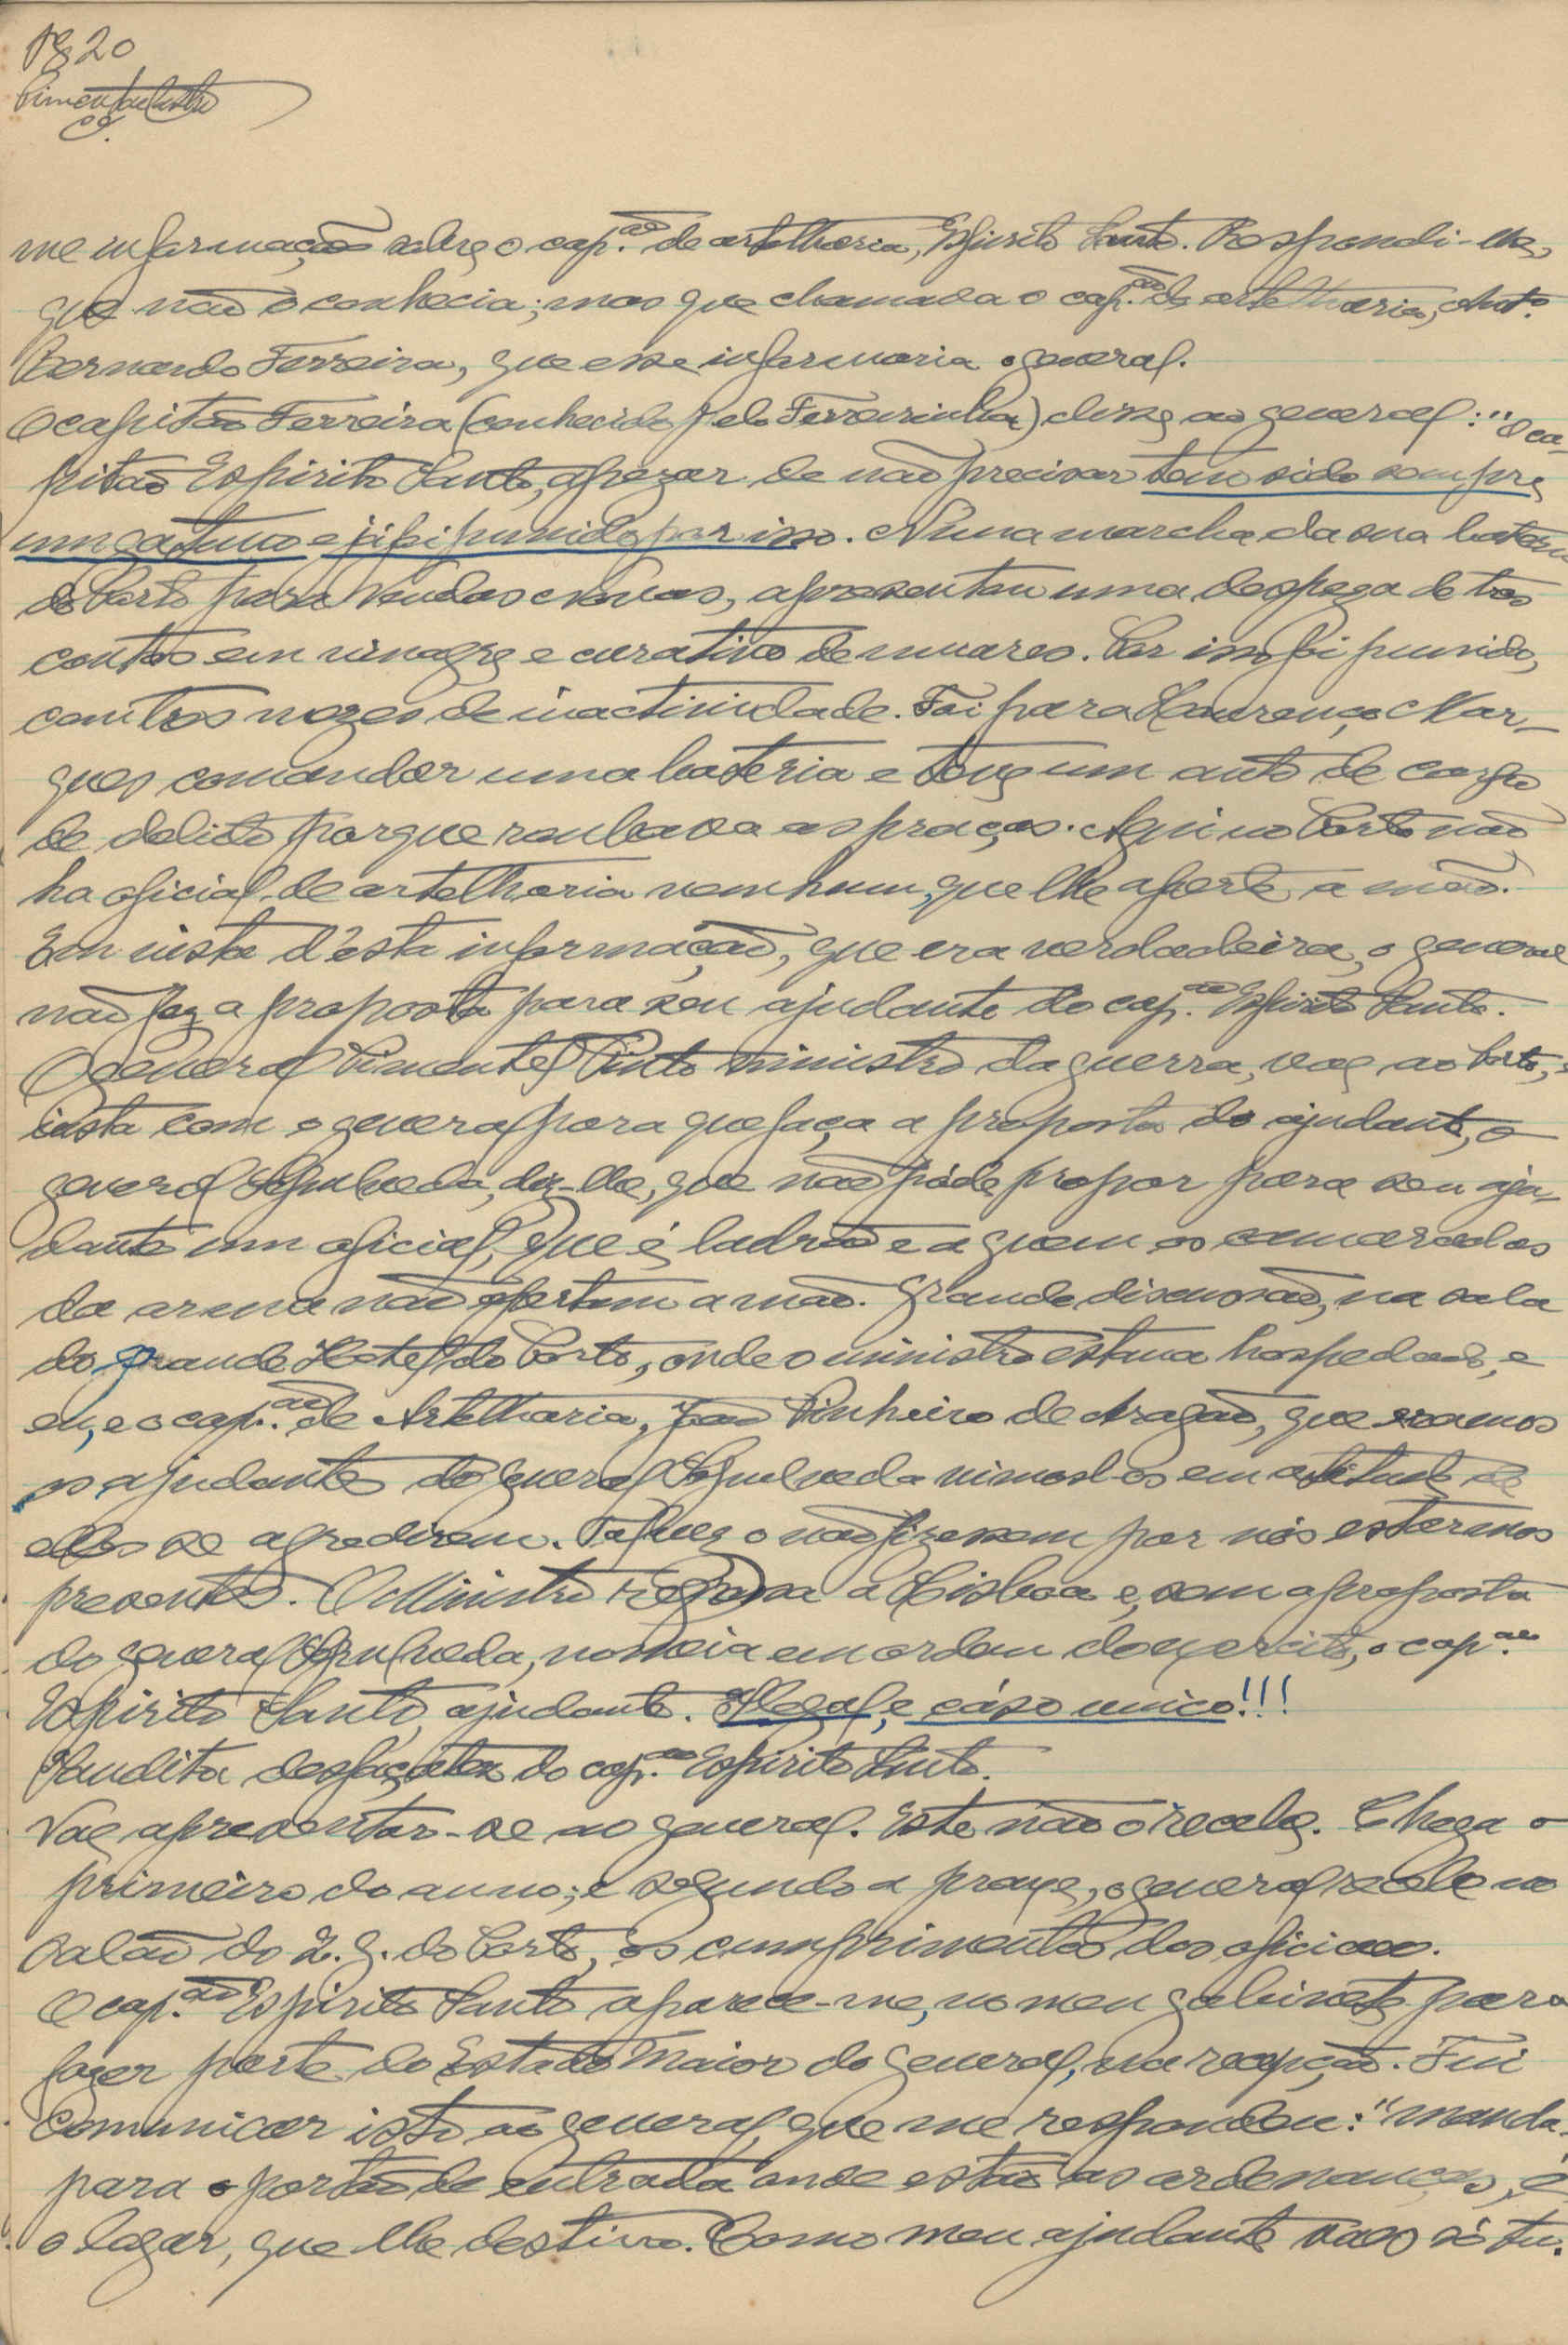 20
me informação sobre o cap.ão de artelharia, Espirito Santo. Respondi-lhe,
que não o conhecia; mas que chamava o cap.ão de artelharia, Ant.º
Bernardo Ferreira, que esse informaria o general.
O capitão Ferreira (conhecido pelo Ferreirinha) disse ao general: "O ca-
pitão Espirito Santo, apezar de não precisar tem sido sempre
um gatuno e já foi punido por isso. N'uma marcha da sua bateria
do Porto para Vendas Novas, apresentou uma despeza de tres
contos em vinagre e curativo de muares. Por isso foi punido,
com tres mezes de inactividade. Foi para Lourenço Mar-
ques comandar uma bateria e teve um auto de corpo
de delicto porque roubava as praças. Aqui no Porto não
ha oficial de artelharia nenhum, que lhe aperte a mão.
Em vista d'esta informação, que era verdadeira, o general
não faz a proposta para seu ajudante do cap.ão Espirito Santo.
O general Pimentel Pinto ministro da guerra, vae ao Porto, e
insta com o general para que faça a proposta do ajudante, o
general Sepulveda, diz-lhe, que não póde propor para seu aju-
dante um oficial, que é ladrão e a quem os camaradas
da arma não apertam a mão. Grande discussão, na sala
do Grande Hotel do Porto, onde o ministro estava hospedado, e
eu, e o cap.ão de Artelharia, João Pinheiro de Aragão, que eramos
os ajudantes do general Sepulveda vimol-os em atitude de
elles se agredirem. Talvez o não fizessem por nós estarmos
presentes. O Ministro regressa a Lisboa e, sem a proposta
do general Sepulveda, nomeia em ordem do exercito, o cap.ão
Espirito Santo, ajudante. Illegal, e cáso unico!!!
Inaudita desfaçatez do cap.ão Espirito Santo.
Vae apresentar-se ao general. Este não o recebe. Chega o
primeiro do anno; e segundo a praxe, o general recebe no
salão do Q. G. do Porto, os cumprimentos dos oficiaes.
O cap.ão Espirito Santo aparece-me, no meu gabinete para
fazer parte do Estado Maior do general, na recepção. Fui
comunicar isto ao general, que me respondeu: "manda-
para o portão de entrada onde estão as ordenanças, é
o logar, que lhe destino. Como meu ajudante vaes só tu.